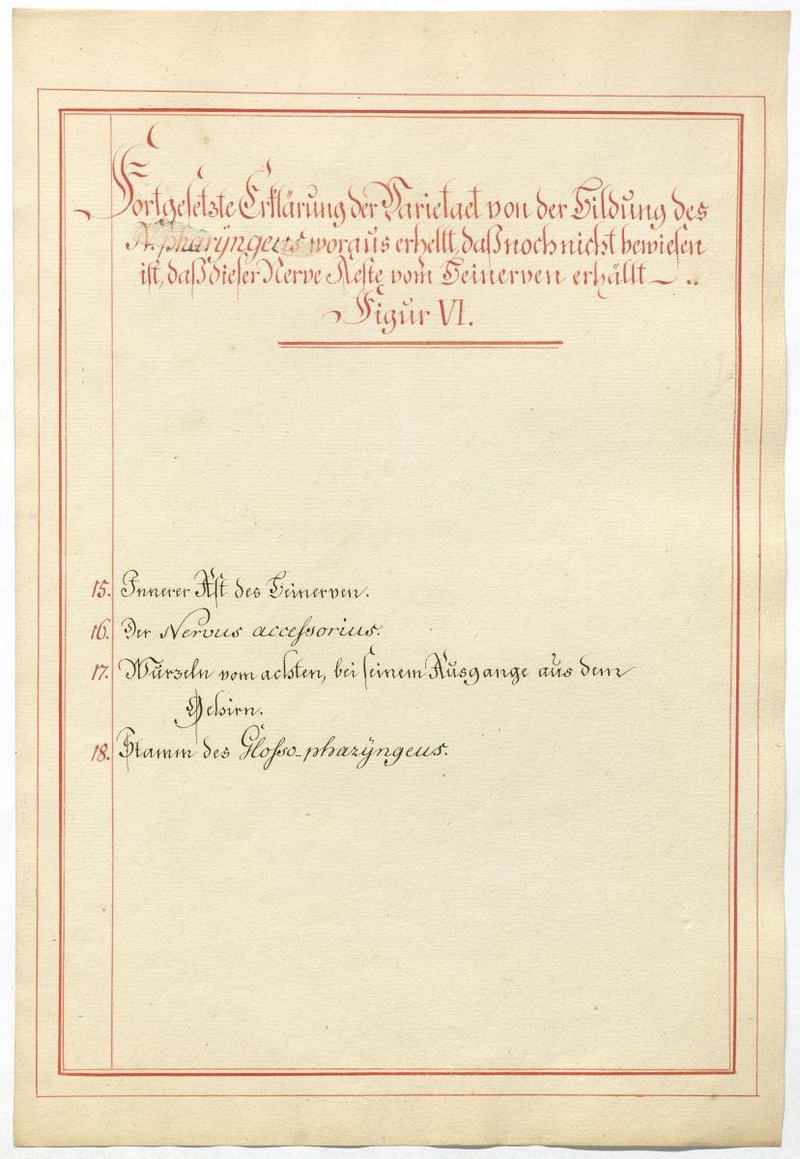 Fortgesetzte Erklärung der Varietaet von der Bildung des
N. pharÿngeus woraus erhellt, daß noch nicht bewiesen
ist, daß dieser Nerve Aeste vom Beinerven erhällt
Figur VI.
15. Innerer Ast des Beinerven.
16. Der Nervus accessorius.
17. Wurzeln vom achten, bei seinem Ausgange aus dem
Gehirn.
18. Stamm des Glosso-pharÿngeus.